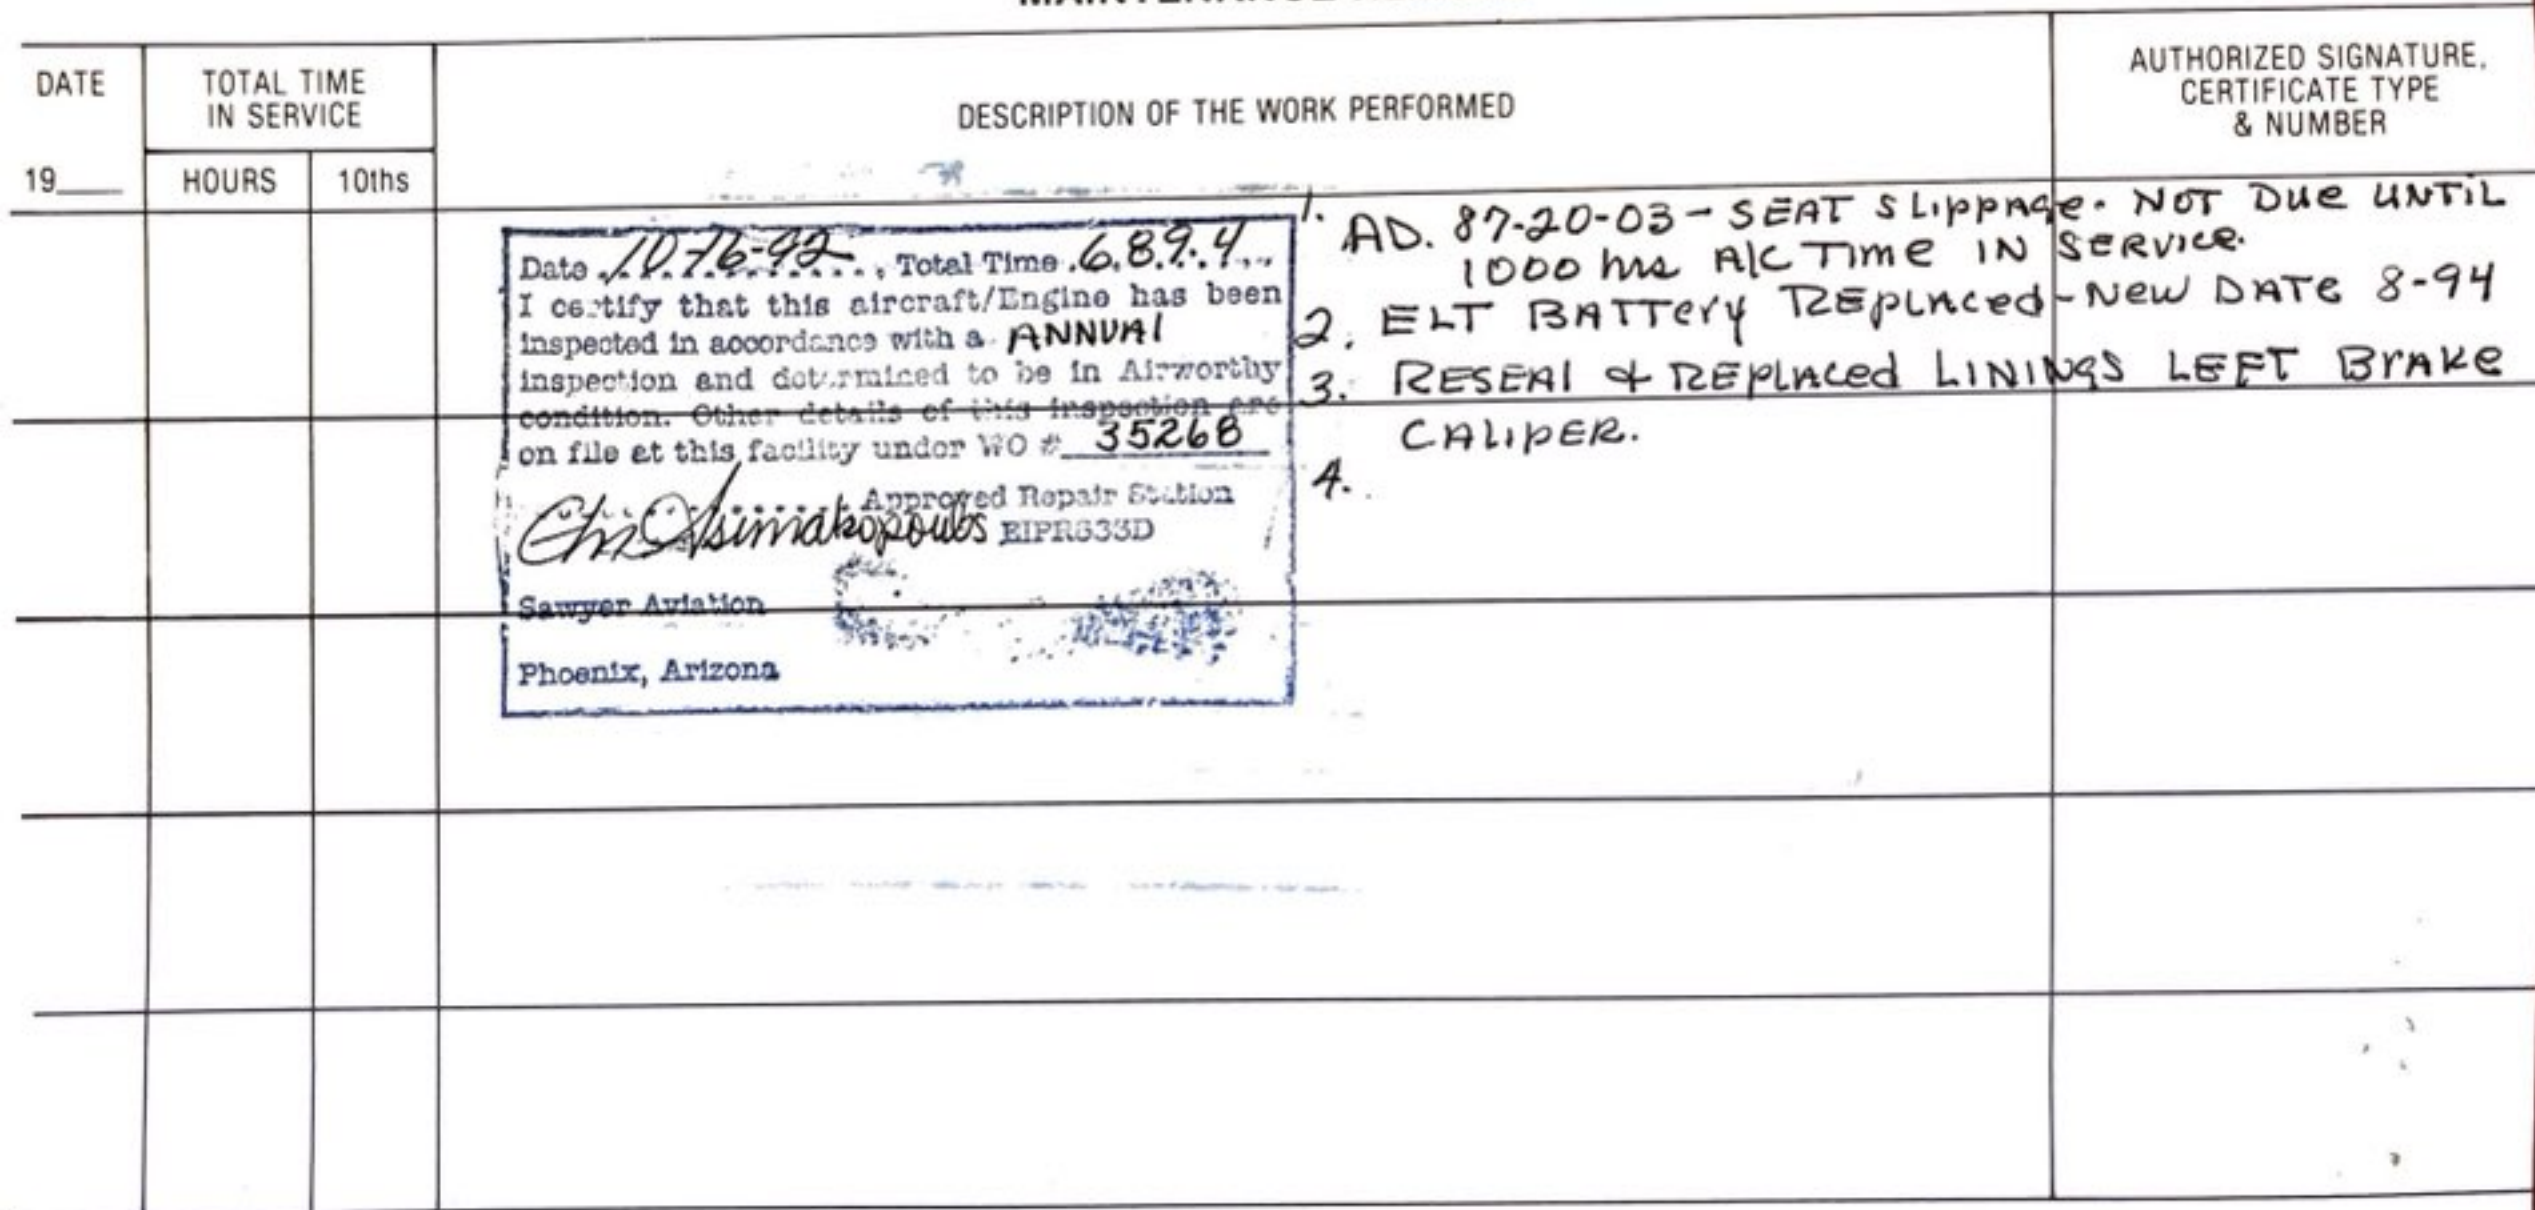 DATE
TOTAL TIME
IN SERVICE
DESCRIPTION OF THE WORK PERFORMED
AUTHORIZED SIGNATURE,
CERTIFICATE TYPE
& NUMBER
19
HOURS
10ths
Date 10-16-92, Total Time 689.4
I certify that this aircraft/Engine has been
inspected in accordance with a ANNUAl
inspection and determined to be in Airworthy
condition. Other details of this inspection are
on file at this facility under WO # 35268
Approved Repair Station
Asimakopoulos
Sawyer Aviation
Phoenix, Arizona
1. AD. 87-20-03 - SEAT SLippAge. NOT Due UNTiL
1000 hrs A/C Time IN SERVICE.
2. ELT BATTery REplAced - New DATe 8-94
3. RESEAl & REplAced LININgS LEFT BrAKe
CALipER.
4.